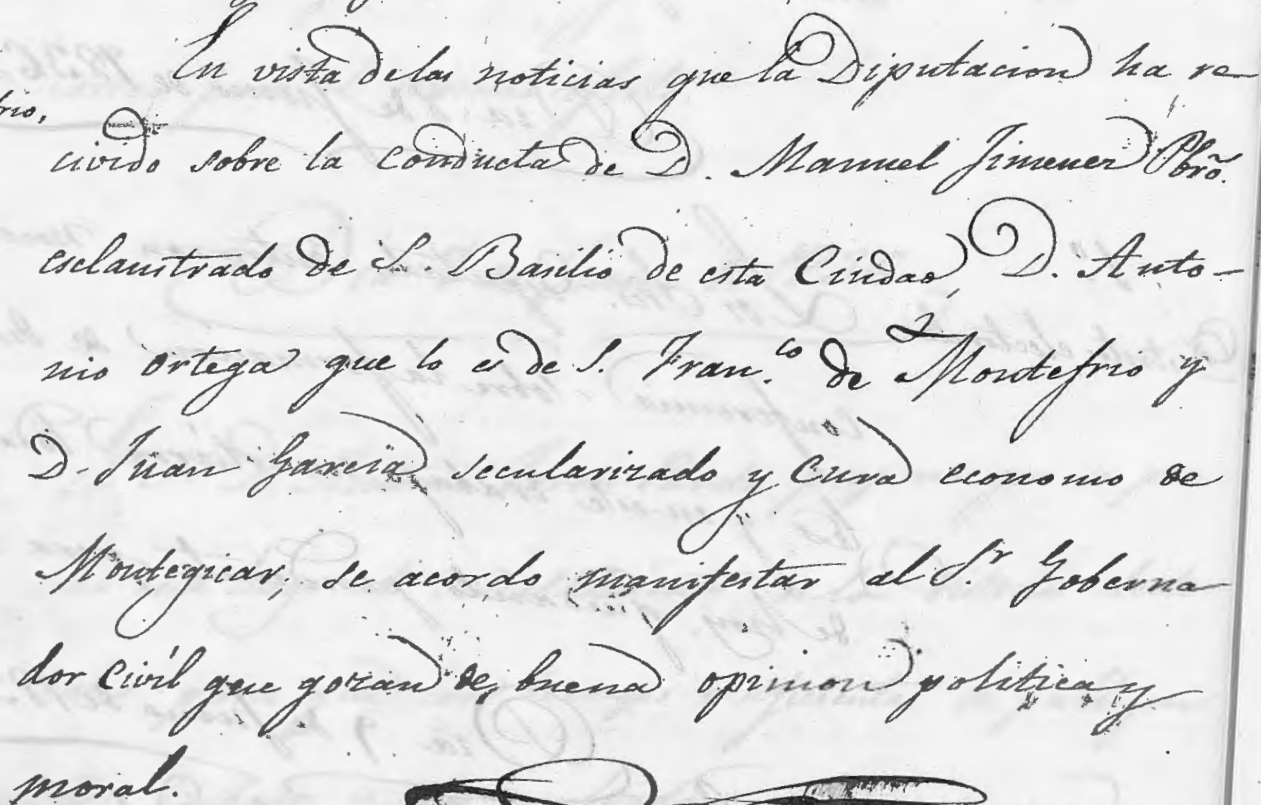 En vista de las noticias que la Diputacion ha re-
civido sobre la conducta de D. Manuel Jimenez Pbrõ.
esclaustrado de S. Basilio de esta Ciudad, D. Anto-
nio Ortega que lo es de S. Fran.co de Montefrio y
D. Juan Garcia secularizado y Cura economo de
Montegicar, se acordo manifestar al S.r Goberna
dor Civil que gozan de buena opinion politica y
moral.